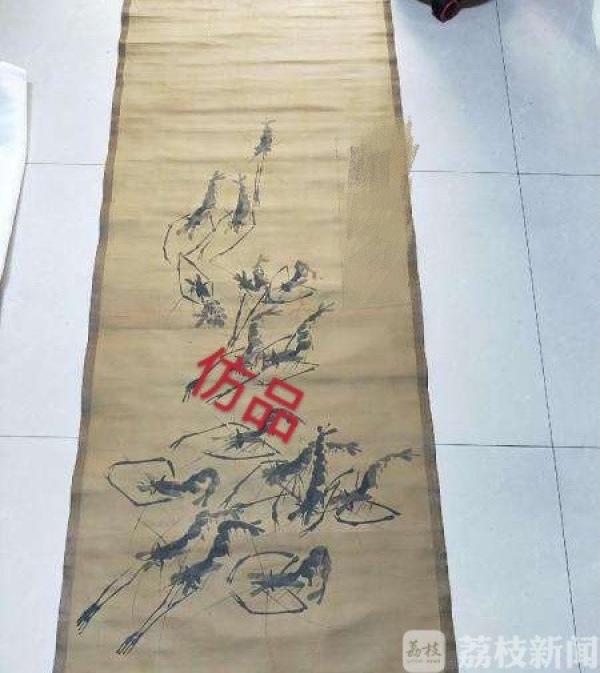 仿品
荔枝
荔枝新闻